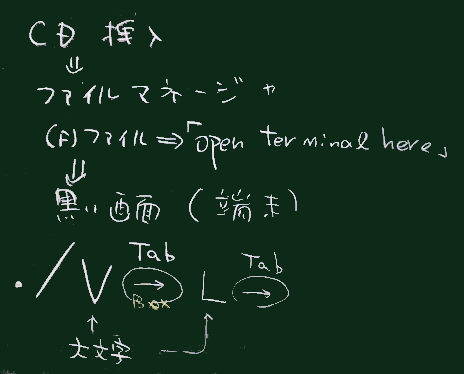 CD 挿入
⇓
ファイルマネージャ
(F)ファイル⇒「open terminal here」
⇓
黒い画面 (端末)
Tab Tab
./V → L →
Box
↑ ↑
大文字